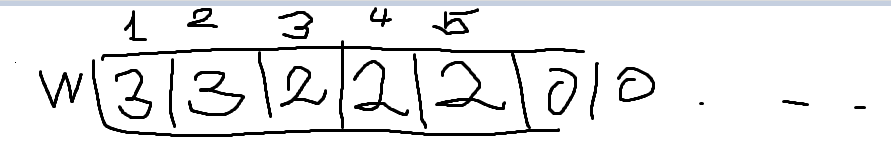 1 2 3 4 5
W|3|3|2|2|2|0|0 . - -